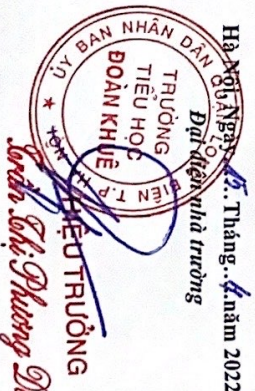 Hà Nội, Ngày 15 Tháng 4 năm 2022
Đại diện nhà trường
ỦY BAN NHÂN DÂN QUẬN LO
BIÊN T.P HÀ NỘI
TRƯỜNG
TIỂU HỌC
ĐOÀN KHUÊ
HIỆU TRƯỞNG
Trần Thị Phương D